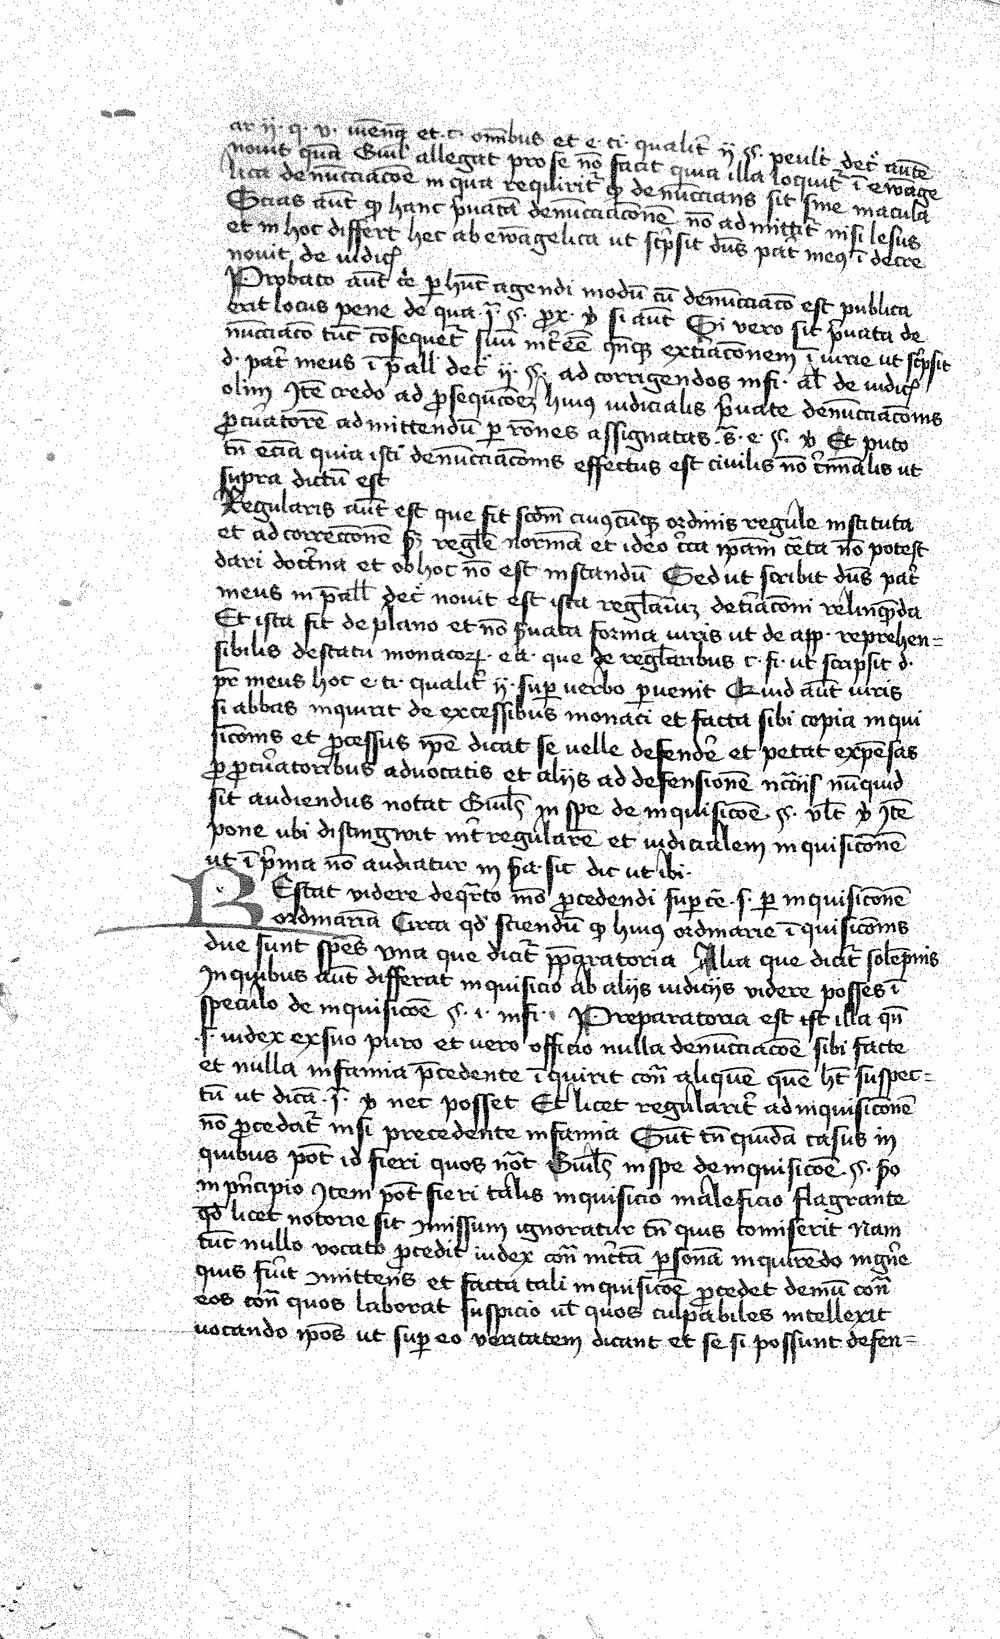 ar ii. q. v. inēnq̄ et. c. om̄ibus et e. ti. qualit̄ ii §. penl̄t dec̄ autē
novit quā Guil̄ allegat pro se nō facit quia illa loquit̄ ī ewāge
lica denūcciacōe in qua requirit̄ ꝙ denūccians sit sine macula
Scias aūt ꝙ hanc p̄vatā denūcciacōnē nō admittit̄ nisi lesus
et in hoc differt hec ab ewāgelica ut sc̄psit dn̄s pat̄ meꝰ ī decre
novit de iudic̄
Probato aūt c̄e ꝑ hūc agendi modū cū denūcciaco est publica
erit locus pene de qua ī. §. ꝓx. v̄ si aūt Si vero sit p̄vata de
nūcciaco tūc cōsequet̄ suū int̄ēē
d. pat̄ meus ī p̄all̄ dec̄ ii. §. ad corrigendos infi. al̄ de iudic̄
olim Itē credo ad ꝓsequcōeꝫ huiꝰ iudicialis p̄vate denūcciacōnis
ꝓcūatorē admittendū ꝑ rōnes assignatas. s̄. e. §. v̄ Et puto
tn̄ eciā quia isti denūcciacōnis effectus est civilis nō c̄mnalis ut
supra dictū est
Regularis aūt est que fit scd̄m cuiꝰcūqꝫ ordinis regule instituta
et ad correccōnē ꝑ regl̄e normā et ideo c̄ca ip̄am c̄ta nō potest
dari doct̄na et ob hoc nō est instandū Sed ut scribit dn̄s pat̄
meus in p̄all̄ dec̄ novit est ista regl̄aiuꝫ det̄iacōni relinq̄nda
Et ista fit de plano et nō s̄vata forma iuris ut de app. reprehen=
sibilis de statu monacoꝝ. ea. que de regl̄aribus c. fi. ut scripsit d.
pr̄ meus hoc e. ti. qualit̄ ii. suꝑ verbo ꝑvenit Quid aūt iuris
si abbas inquirit de excessibus monaci et facta sibi copia inqui
sicōnis et ꝓcessus ip̄e dicat se uelle defendē et petat expēsas
ꝓ ꝓcūatoribus advocatis et aliis ad defensionē nc̄ciis nūquid
sit audiendus notat Guil̄s in spe de inquisicōe. §. ul̄t v̄ Itē
pone ubi distingwit int̄ regularē et iudicialem inquisicōnē
ut ī p̄ma nō audiatur in s̄a. sic dic ut ibi.
REstat videre de qr̄to mō ꝓcedendi suꝑ c̄e. s. ꝑ inquisicōnē
ordinariā Circa qd̄ sciendū ꝙ huiꝰ ordinarie īquisicōnis
due sunt spēs una que dicit̄ p̄paratoria Alia que dicit̄ solēpnis
In quibus aūt differat inquisicio ab aliis iudiciis videre posses ī
speculo de inquisicōe §. i. infi. Preparatoria est ist illa qn̄
.s. iudex ex suo puro et vero officio nulla denūcciacōe sibi facte
et nulla infamia p̄cedente īquirit con̄ aliquē quē hēt suspec=
tū ut dicā. ī. v̄ nec posset Et licet regularit̄ ad inquisicōnē
nō ꝓcedat̄ nisi precedente infamia Sūt tn̄ quidā casus in
quibus pōt id fieri quos nōt Guil̄s in spe de inquisicōe. §. s̄o
in p̄ncipio Item pōt fieri talis inquisicio maleficio flagrante
qd̄ licet notorie sit ꝯmissum ignoratur tn̄ quis comiserit Nam
tūc nullo vocato ꝓcedit iudex con̄ inc̄tā ꝑsonā inquirēdo in gn̄e
quis fūit ꝯmittens et facta tali inquisicōe ꝓcedet demū con̄
eos con̄ quos laborat suspicio ul̄ quos culpabiles intellexit
vocando ip̄os ut suꝑ eo veritatem dicant et se si possunt defen=